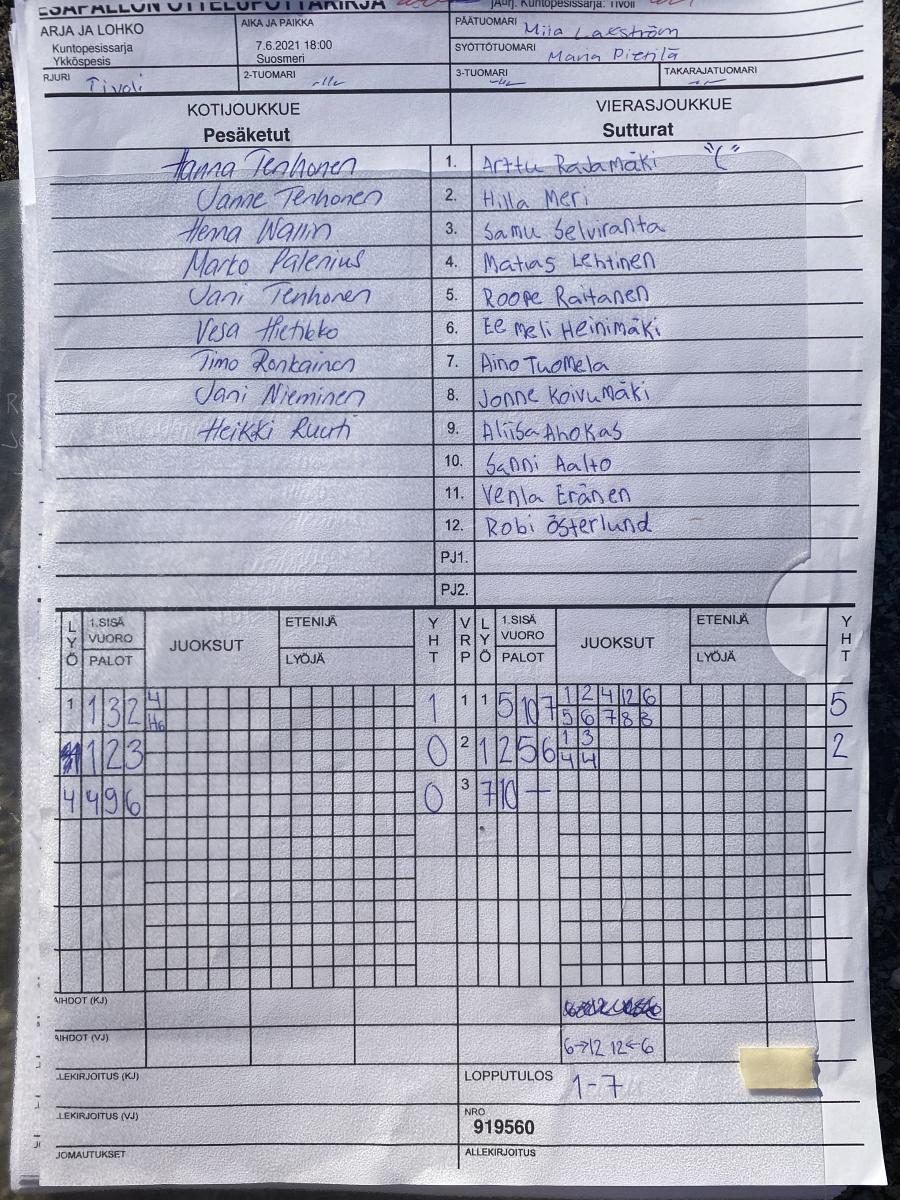 ESÄPALLON OTTELUPÖYTÄKIRJA
Kuntopesissarja: Tivoli
ARJA JA LOHKO
Kuntopesissarja
Ykköspesis
AIKA JA PAIKKA
7.6.2021 18:00
Suosmeri
PÄÄTUOMARI Miia Laeström
SYÖTTÖTUOMARI Maria Pietilä
RJURI Tivoli
2-TUOMARI -//-
3-TUOMARI -//-
TAKARAJATUOMARI -//-
KOTIJOUKKUE VIERASJOUKKUE
Pesäketut Sutturat
Hanna Tenhonen 1. Arttu Rajamäki "("
Janne Tenhonen 2. Hilla Meri
Henna Wallin 3. Samu Selviranta
Marko Palenius 4. Matias Lehtinen
Jani Tenhonen 5. Roope Raitanen
Vesa Hietikko 6. Eemeli Heinimäki
Timo Ronkainen 7. Aino Tuomela
Jani Nieminen 8. Jonne Koivumäki
Heikki Ruuti 9. Aliisa Ahokas
10. Sanni Aalto
11. Venla Eränen
12. Robi Österlund
PJ1.
PJ2.
LYÖ 1.SISÄ VUORO PALOT JUOKSUT ETENIJÄ LYÖJÄ YHT VRP LYÖ 1.SISÄ VUORO PALOT JUOKSUT ETENIJÄ LYÖJÄ YHT
1 1 3 2 4 1 1 1 5 10 7 1 2 4 12 6 5
H6 5 6 7 8 8
1 2 3 0 2 1 2 5 6 1 3 2
4 4
4 4 9 6 0 3 7 10 —
AIHDOT (KJ)
AIHDOT (VJ) 6→12 12←6
LEKIRJOITUS (KJ) LOPPUTULOS 1-7
LEKIRJOITUS (VJ) NRO
919560
JOMAUTUKSET ALLEKIRJOITUS